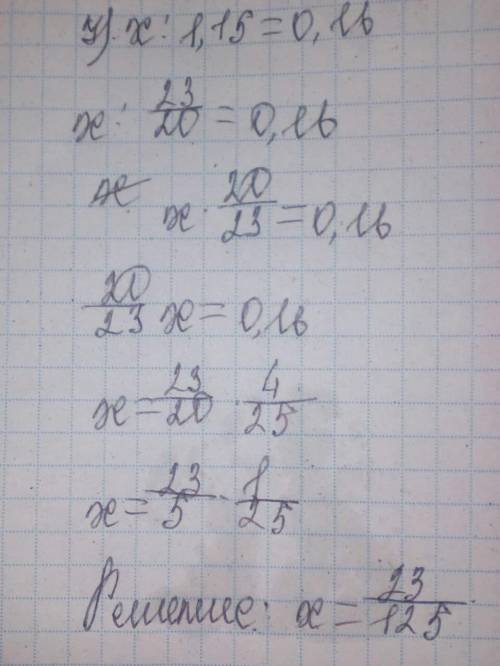 у) x : 1,15 = 0,16
x : 23/20 = 0,16
x · 20/23 = 0,16
20/23 x = 0,16
x = 23/20 · 4/25
x = 23/5 · 1/25
Решение: x = 23/125